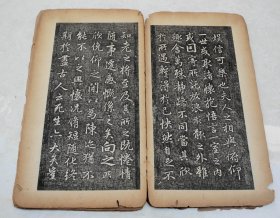 娛信可樂也夫人之相與俯仰
一世或取諸懷抱悟言一室之內
或因寄所託放浪形骸之外雖
趣舍萬殊靜躁不同當其欣
於所遇暫得於己快然自足不
知老之將至及其所之既惓情
隨事遷感慨係之矣向之所
欣俛仰之間以為陳迹猶不
能不以之興懷況脩短隨化終
期於盡古人云死生亦大矣豈